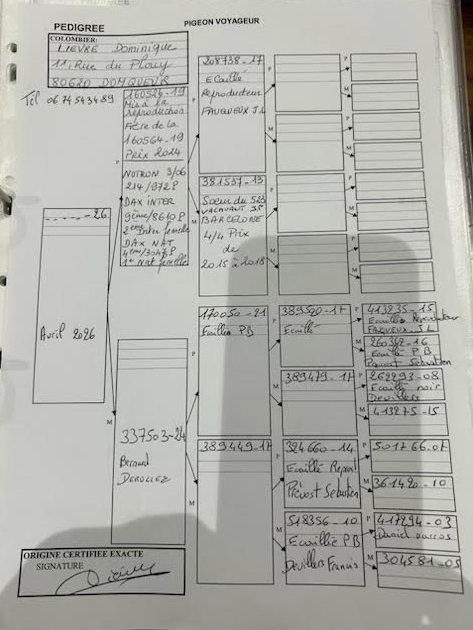 PEDIGREE
PIGEON VOYAGEUR
COLOMBIER:
LIEVRE Dominique
11, Rue du Plouy
80620 DOMQUEUR
Tel 06 74 54 34 89
------26
Avril 2026
P
160524-19
Mis à la
reproduction
Frère de la
160564-19
Prix 2024
NOTRON 3/06
214/872P
DAX INTER
9ème/8610P
2ème Inter femelle
DAX NAT
4ème/3047P
1er Nat femelle
M
337503-24
Bernard
P
208738-17
Ecaillé
Reproducteur
FAUQUEUX J.L
M
381537-13
Soeur du 523
BARCELONE
4/4 Prix
de
2015 à 2018
P
170050-21
Ecaillé PB
M
389449-17
P
M
P
M
P
389520-17
Ecaillé
M
389479-17
P
324660-14
Ecaillé Reprod
Prévost Sébastien
M
518356-10
Ecaillé PB
Devillers Francis
P
M
P
M
P
M
P
M
P
413235-15
Ecaillé Reproducteur
FAUQUEUX J.L
M
260362-16
Ecaillé P.B
Prévost Sébastien
P
262293-08
Ecaillé noir
Devillers
M
413275-15
P
501766.07
M
361420-10
P
417294-03
Daniel
M
304581-05
ORIGINE CERTIFIEE EXACTE
SIGNATURE